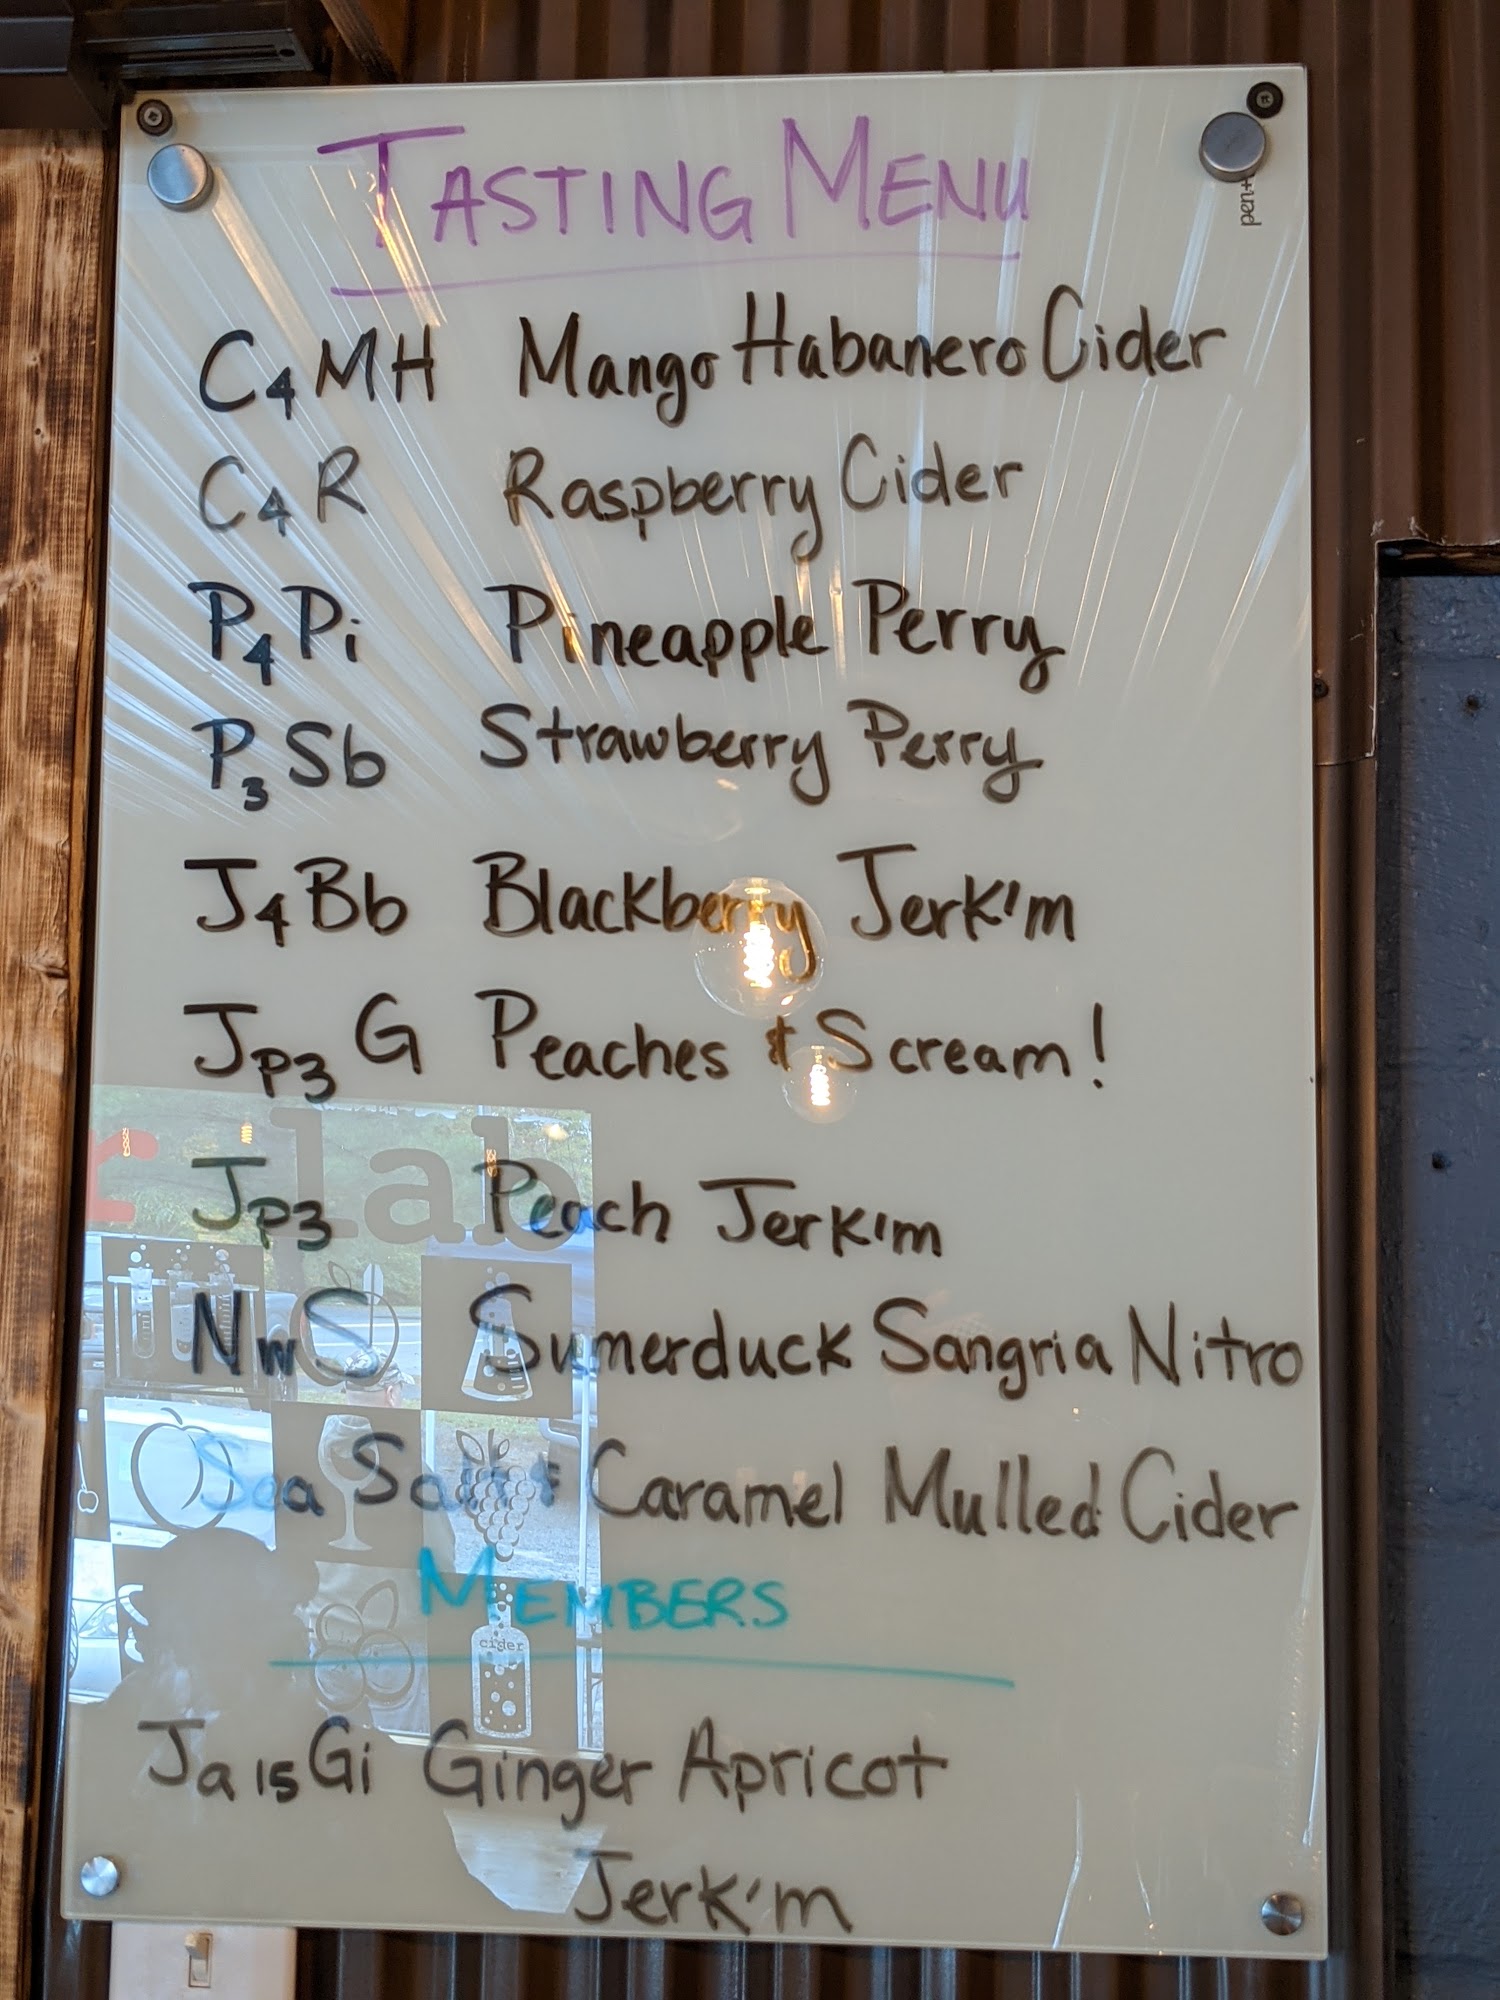 TASTING MENU
pen+
C4MH Mango Habanero Cider
C4R Raspberry Cider
P4Pi Pineapple Perry
P3Sb Strawberry Perry
J4Bb Blackberry Jerk'm
JP3 G Peaches & Scream!
r lab
JP3 Peach Jerk'm
NWS Sumerduck Sangria Nitro
Sea Salt & Caramel Mulled Cider
MEMBERS
cider
Ja15Gi Ginger Apricot
Jerk'm